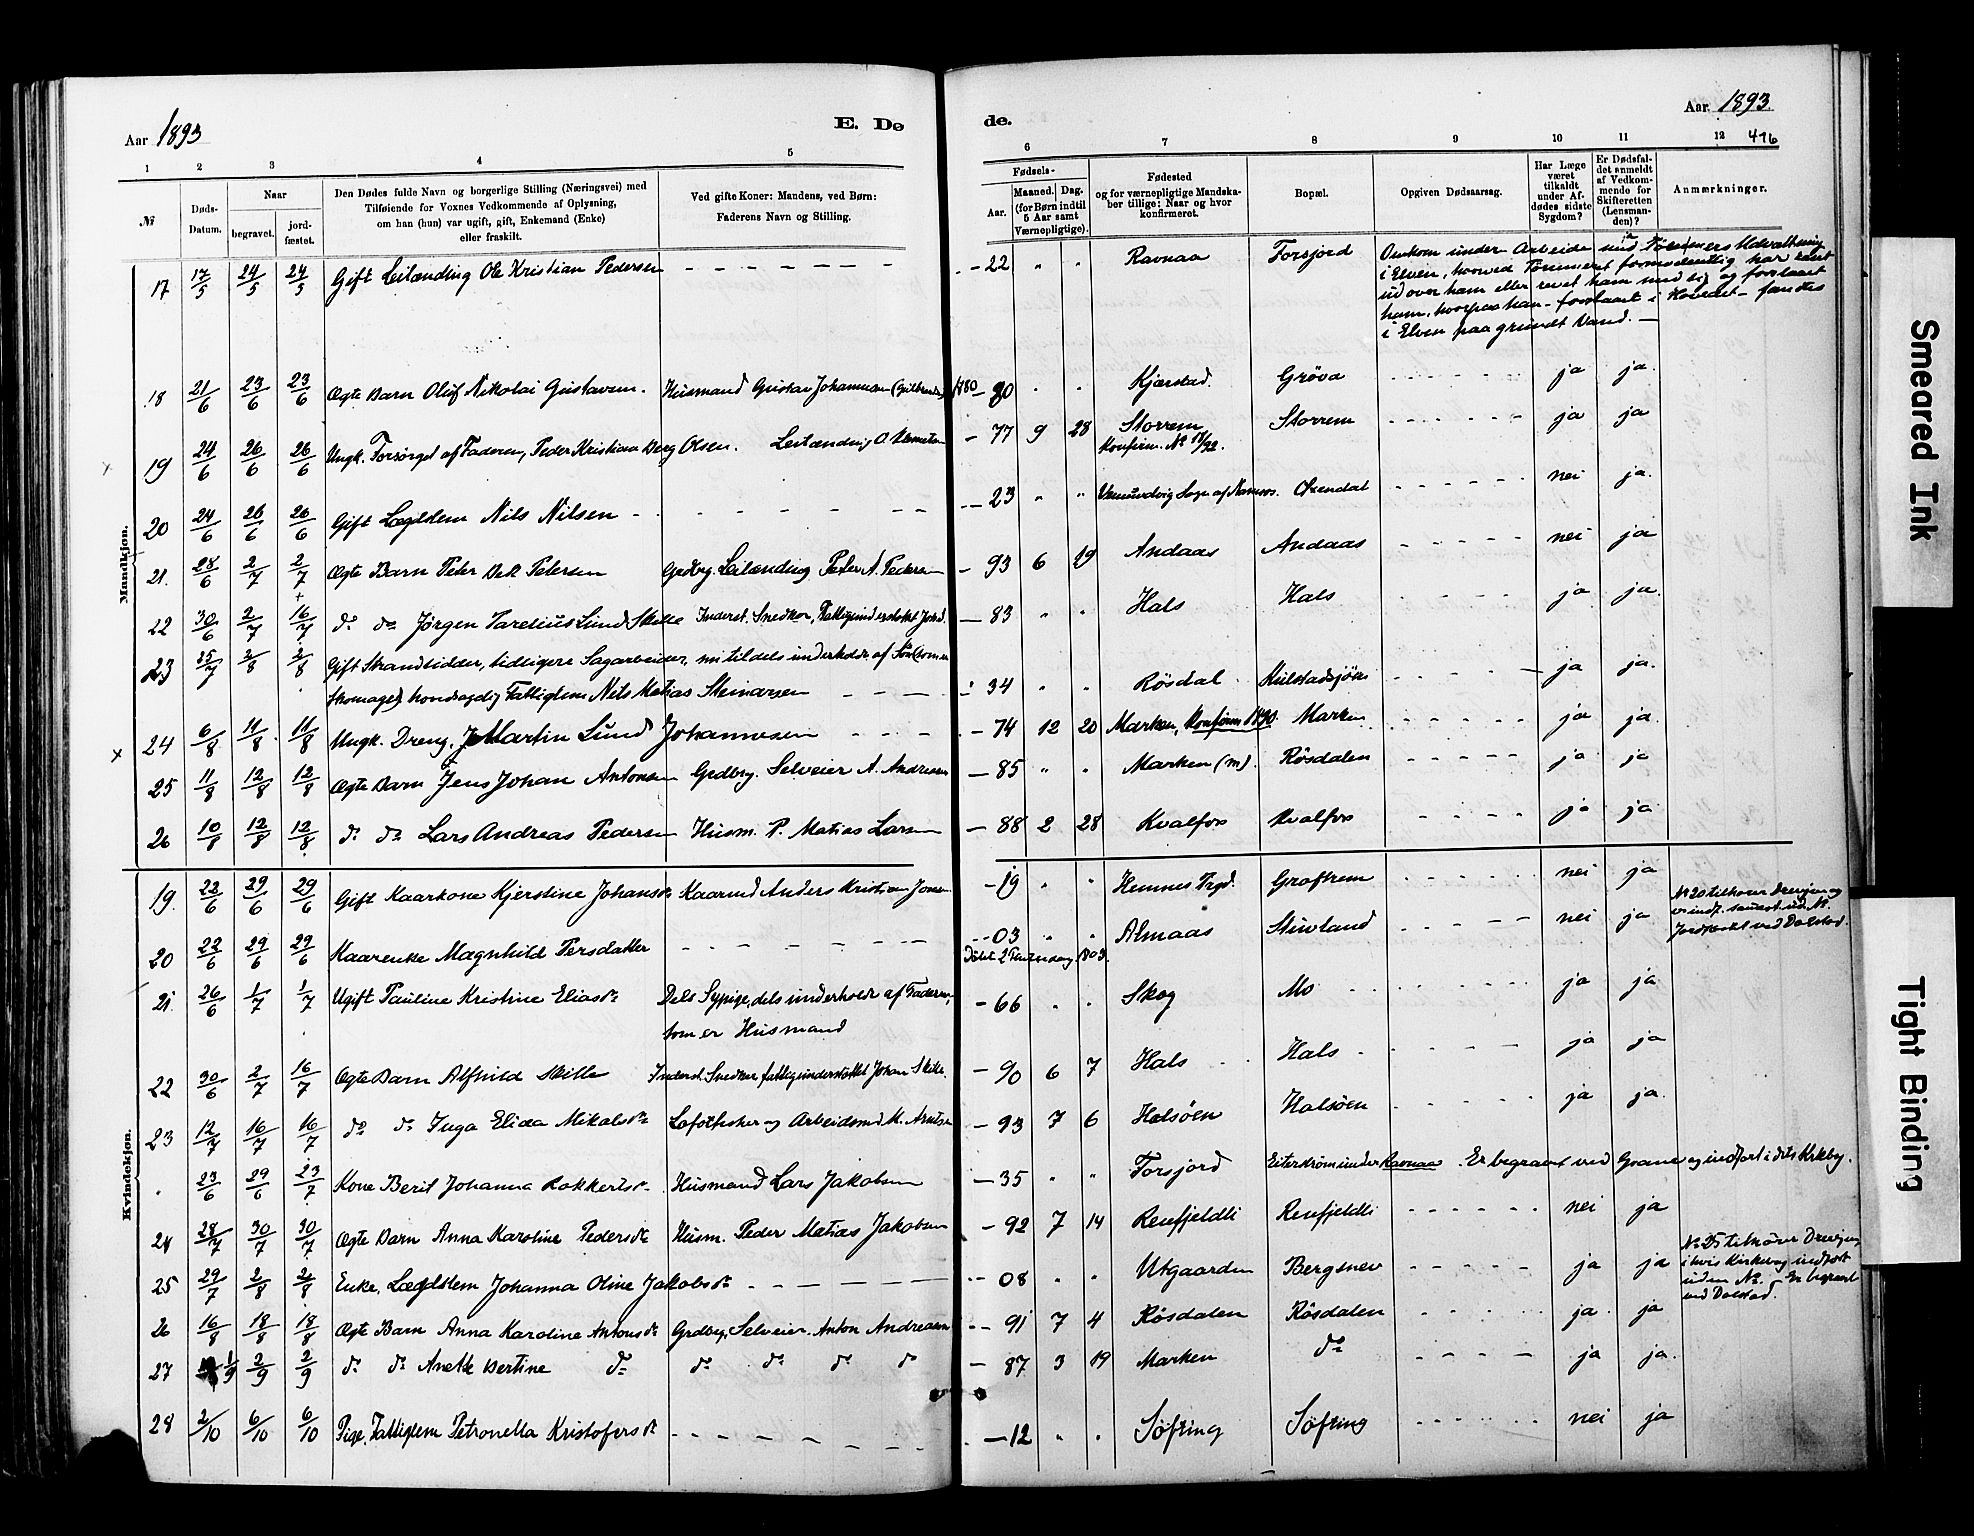 Aar 1893
E. Dø
de.
Aar 1893
1 2 3 4 5 6 7 8 9 10 11 12 416
№
Døds-Datum.
Naar
begravet.
jord-fæstet.
Den Dødes fulde Navn og borgerlige Stilling (Næringsvei) med
Tilføiende for Voxnes Vedkommende af Oplysning,
om han (hun) var ugift, gift, Enkemand (Enke)
eller fraskilt.
Ved gifte Koner: Mandens, ved Børn:
Faderens Navn og Stilling.
Fødsels-
Aar.
Maaned. Dag.
(for Børn indtil
5 Aar samt
Værnepligtige).
Fødested
og for værnepligtige Mandska-
ber tillige: Naar og hvor
konfirmeret.
Bopæl.
Opgiven Dødsaarsag.
Har Læge
været
tilkaldt
under Af-
dødes sidste
Sygdom?
Er Dødsfal-
det anmeldt
af Vedkom-
mende for
Skifteretten
(Lensman-
den)?
Anmærkninger.
Mandkjøn.
17 17/5 24/5 24/5 Gift Leilænding Ole Kristian Pedersen - - - - - - -22 " " Ravnaa Forsjord Omkom under Arbeide med Tømmers Udvæltning
i Elven, hvorved Tømmeret formodentlig har rant
ud over ham eller revet ham med sig og forslaaet
ham, hvorpaa han - forslaaet i Hovedet - fandtes
i Elven paa grundt Vand. -
18 21/6 23/6 23/6 Ægte Barn Oluf Nikolai Gustavsen. Husmand Gustav Johannesen 1880 - 80 " " Kjærstad. Grøva - - - - ja ja.
19 24/6 26/6 26/6 Ungk. Forsørget af Faderen, Peder Kristian Berg Olsen. Leilænding O. -77 9 28 Storrem Storrem - - - - ja ja
Konfirm. №
20 24/6 26/6 26/6 Gift Lægdslem Nils Nilsen - - - - - - -23 " " Sogn af Namsos. - - - - nei ja.
21. 28/6 2/7 2/7 Ægte Barn Peter Petersen Grdbrg. Leilænding Peter A. Pedersen -93 6 19 Andaas Andaas - - - - nei ja
22 30/6 2/7 16/7 do do Jørgen Tarelius Lund Skille Inderst. Snedker, Fattigunderstøttet -83 " " Hals Hals - - - - ja ja.
23 25/7 2/8 2/8 Gift Strandsidder, tidligere Sagarbeider, nu tildels underholdt af Søn som er
Skomager, Fattiglem Nils Matias Steinarsen - - - -34 " " Røsdal - - - - ja ja.
24 6/8 11/8 11/8 Ungk. Dreng, Martin Lund Johannesen - - - -74 12 20 Marken, Konfirm 1890. Marken - - - - ja ja.
25 11/8 12/8 12/8 Ægte Barn Jens Johan Antonsen Grdbrg. Selveier A. Andreasen -85 " " Marken (m) Røsdalen - - - - ja ja
26 10/8 12/8 12/8 do do Lars Andreas Pedersen Husm. P. Matias Larsen -88 2 28 Kvalfors Kvalfors - - - - ja ja
Kvindekjøn.
19. 22/6 29/6 29/6 Gift Kaarkone Kjerstine Johansdr Kaarmd Anders Kristian Jonsen -19 " " Hemnes Prgd. - - - - nei ja
20 22/6 29/6 29/6 Kaarenke Magnhild Persdatter - - - - - -03 " " Almaas Stuvland - - - - nei ja № 20 tilhører Drevjen og
er indf. uden №.
Jordfæstet ved Dolstad.
Døbt 1803.
21. 26/6 1/7 1/7 Ugift Pauline Kristine Eliasdr Dels Sypige, dels underholdt af Faderen,
som er Husmand -66 " " Skog Mo - - - - ja ja.
22 30/6 2/7 16/7 Ægte Barn Alfhild Skille Inderst. Snedker fattigunderstøttet Johan Skille. -90 6 7 Hals Hals - - - - ja ja
23 12/7 16/7 16/7 do do Inga Elida Mikalsdr Lofotfisker og Arbeidsmd M. Arntsen -93 7 6 Halsøen Halsøen - - - - ja ja.
" 23/6 29/6 23/7 Kone Berit Johanna Rokkertsdr. Husmand Lars Jakobsen -35 " " Forsjord Eiterstrøm under Ravnaa. Er begravet ved Grane og indført i dets Kirkebog.
24 28/7 30/7 30/7 Ægte Barn Anna Karoline Pedersdr Husm. Peder Matias Jakobsen -92 7 14 Renfjeldli Renfjeldli - - - - nei ja
25 29/7 2/8 2/8 Enke, Lægdslem Johanna Oline Jakobsdr - - - - - -08 " " Utgaarden Bergsnev - - - - ja ja № 25 tilhører Drevjen,
i hvis Kirkebog indført
uden №. - Er begravet
ved Dolstad.
26 16/8 18/8 18/8 Ægte Barn Anna Karoline Antonsdr Grdbrg, Selveier Anton Andreasen -91 7 4 Røsdalen Røsdalen - - - - ja ja
27 1/9 2/9 2/9 do do Anette Bertine do do do do do -87 3 19 Marken do - - - - ja ja.
28 2/10 6/10 6/10 Pige, Fattiglem Petronella Kristofersdr - - - - - -12 " " Søfting Søfting - - - - nei ja
Smeared Ink
Tight Binding